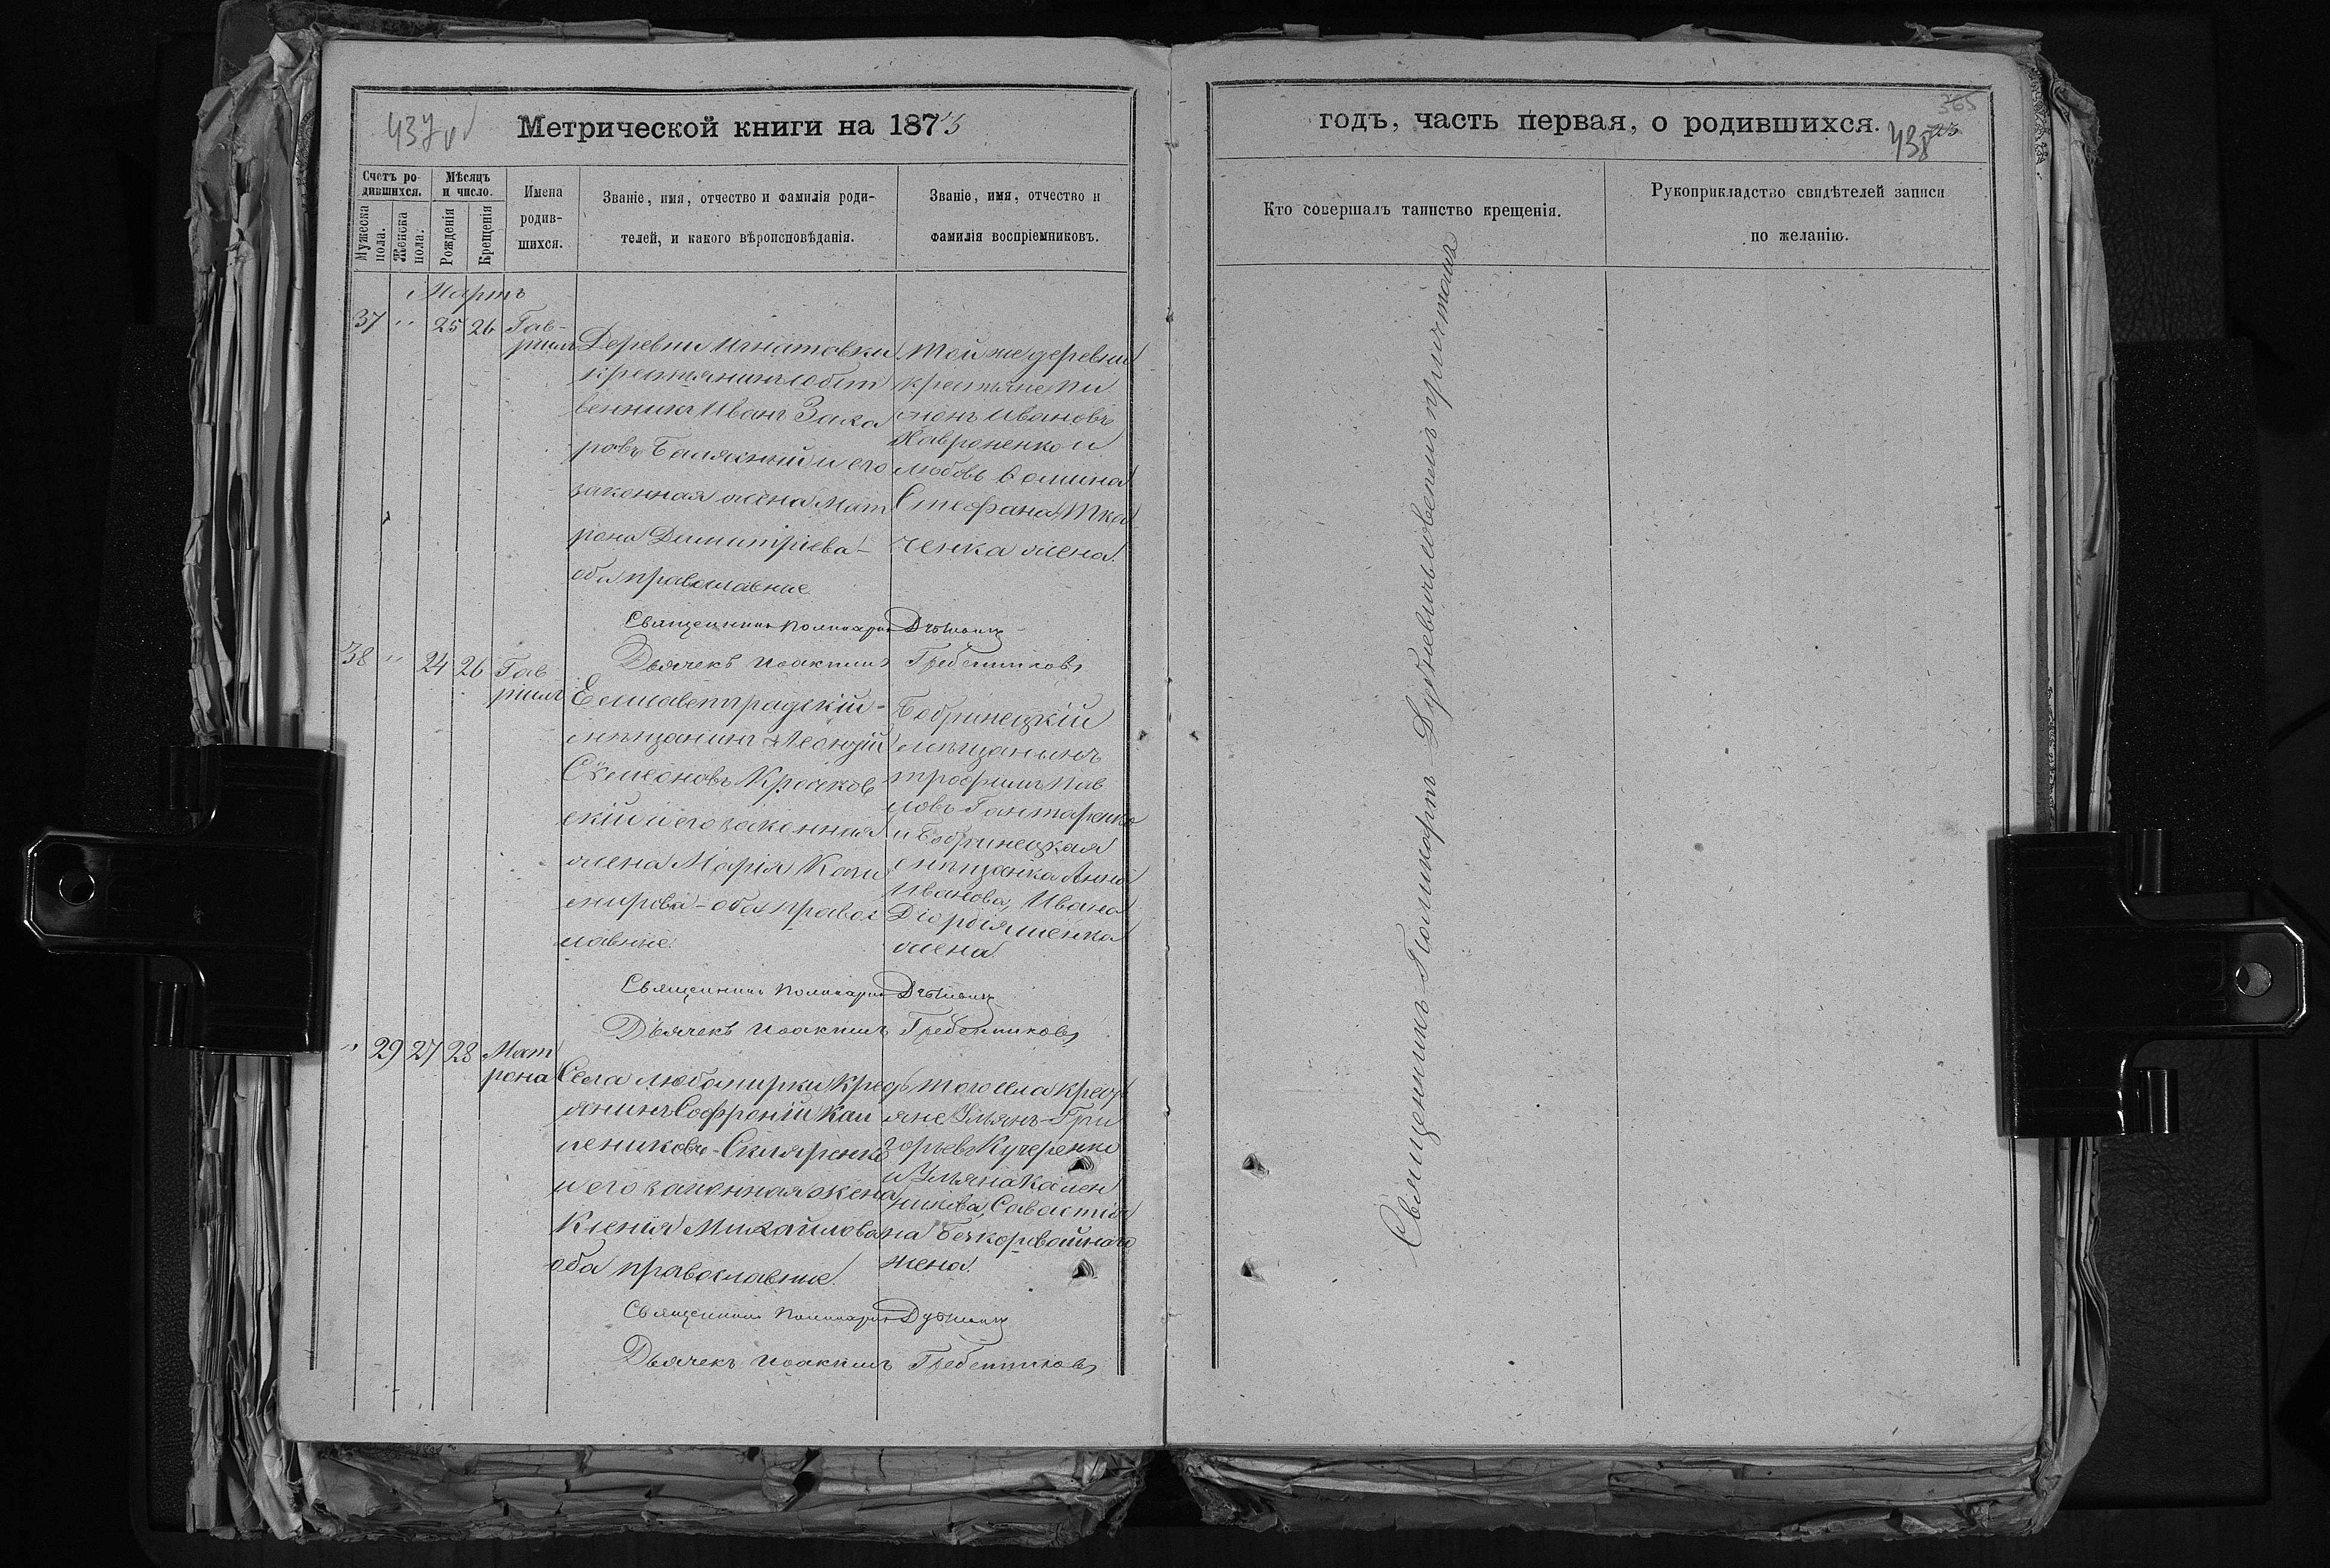 437
Метрической книги на 1873
Счетъ родившихся.
Мужеска пола.
Женска пола.
Мѣсяцъ и число.
Рожденія
Крещенія
Имена родившихся.
Званіе, имя, отчество и фамилія роди-
телей, и какого вѣроисповѣданія.
Званіе, имя, отчество и
фамилія воспріемниковъ.
Мартъ
37 " 25 26 Гав-
ріилъ
Деревни Игнатовки
крестьянинъ собст
венникъ Иванъ Заха
ровъ и его
законная жена Мат
рона Димитріева-
оба православные
той же деревни
крестьяне
Ивановъ
и
Любовь Фомина
Стефана Тка
ченка жена.
Священникъ Поликарпъ
Дьячекъ Иоакимъ Гребенниковъ
38 " 24 26 Гав
ріилъ
Елисаветградскій-
мѣщанинъ Леонтій
Симеоновъ
скій и его законная
жена Марія Кази
мирова - оба правос
лавные.
Бобринецкій
мѣщанинъ
Трофимъ Пав
ловъ Гонтаренко
и Бобринецкая
мѣщанка Анна
Иванова, Ивана
жена.
Священникъ Поликарпъ
Дьячекъ Иоакимъ Гребенниковъ
" 29 27 28 Мат
рона
Села Любомирки крест
янинъ Софроній Кал
леников Скляренко
и его законная жена
Ксенія Михайлова
оба православные.
того села крест
яне Ульянъ Гри
горьевъ Кучеренко
и Ульяна Кален
никова, Савастія
на Безкоровайнаго
жена.
Священникъ Поликарпъ
Дьячекъ Иоакимъ Гребенниковъ
годъ, часть первая, о родившихся.
365
438
Кто совершалъ таинство крещенія.
Рукоприкладство свидѣтелей записи
по желанію.
Священникъ Поликарпъ Дубневичъ съ причтомъ